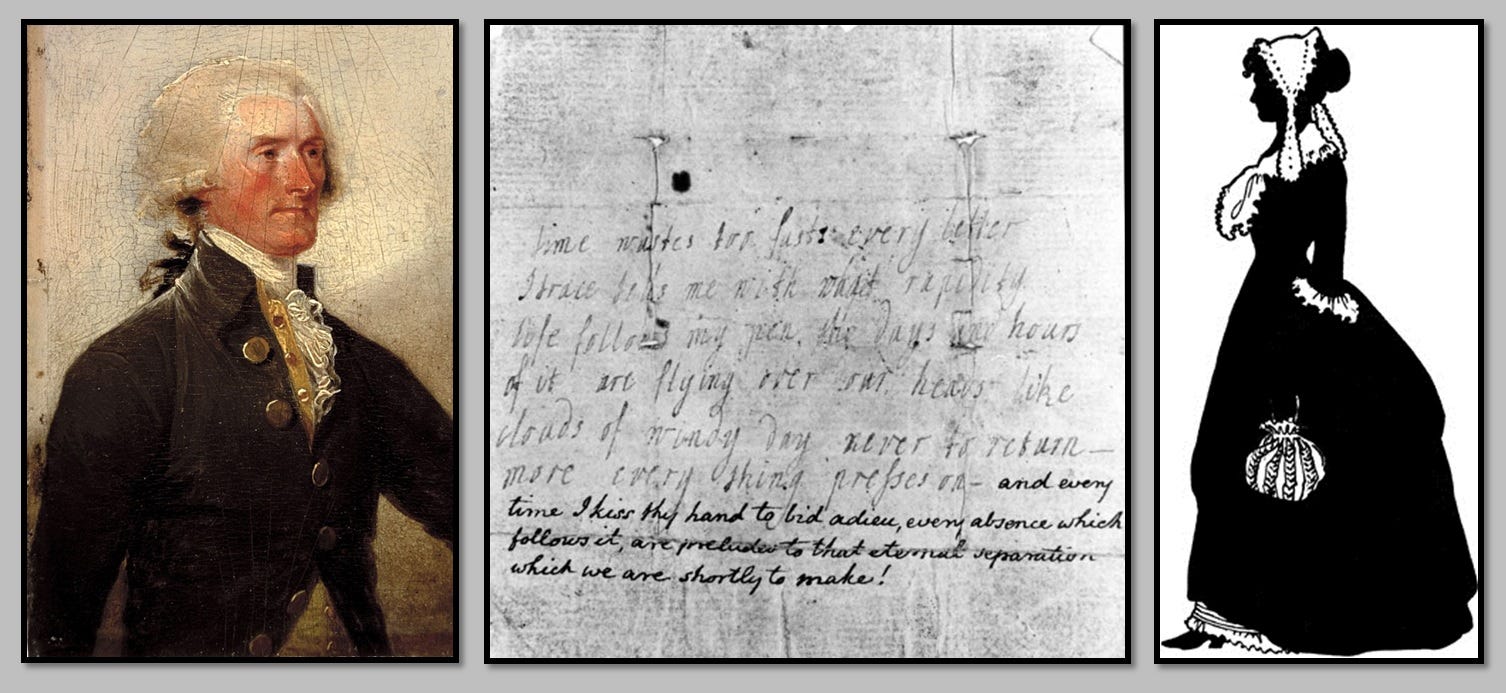 time wastes too fast: every letter
I trace tells me with what rapidity
life follows my pen. the days and hours
of it are flying over our heads like
clouds of windy day never to return—
more every thing presses on— and every
time I kiss thy hand to bid adieu, every absence which
follows it, are preludes to that eternal separation
which we are shortly to make!